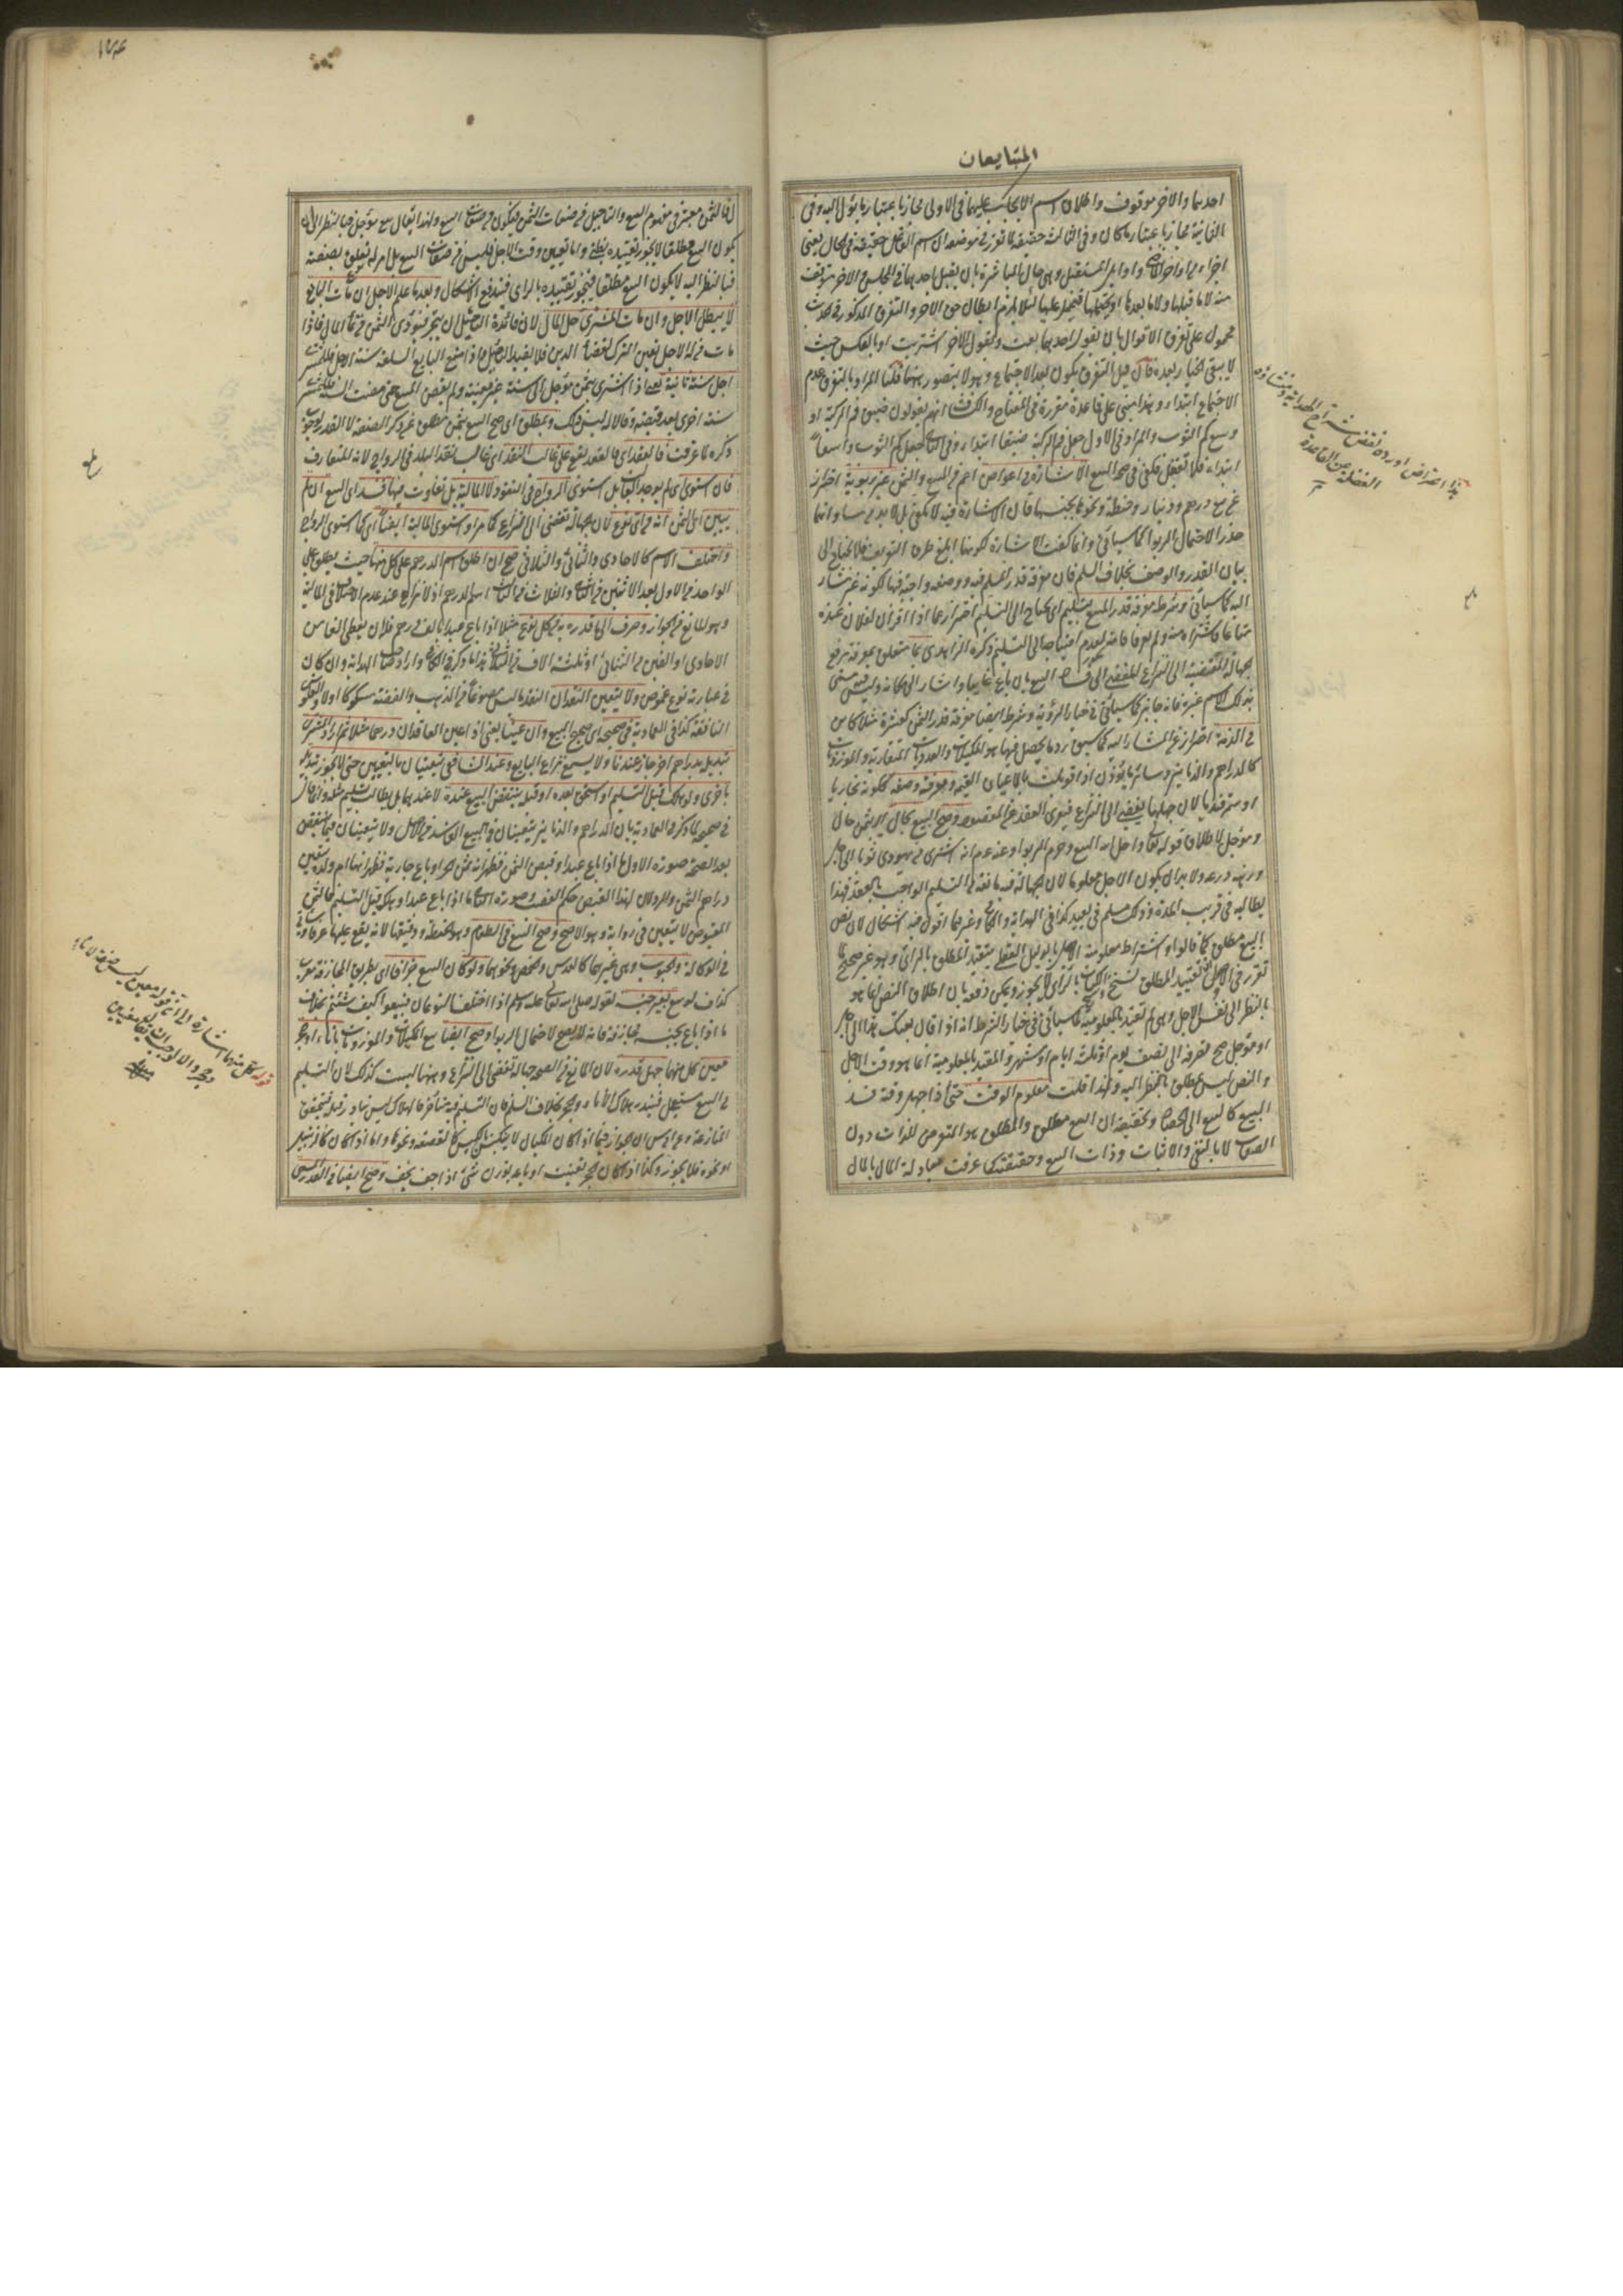 المتبايعان
احدهما والاخر موقوف واطلاق اسم الايجاب عليهما في الاولى مجاز باعتبار ما يؤل اليه وفي
الثانية مجاز باعتبار ما كان وفي الثالثة حقيقة لما تقرر في موضعه ان اسم الفاعل حقيقة في الحال يعني
اجزاء من اواخر الماضي واوايل المستقبل وهي حال المباشرة بان يقبل احدهما في المجلس والاخر متوقف
منه لا ما قبلها ولا ما بعدها او يحتملها فيحمل عليها لئلا يلزم ابطال حق الاخر والتفرق المذكور في الحديث
محمول على تفرق الاقوال بان يقول احدهما بعت ويقول الاخر اشتريت او بالعكس حيث
لا يبقى الخيار بعده فان قيل التفرق يكون بعد الاجتماع وهو لا يتصور ههنا قلنا المراد بالتفرق عدم
الاجتماع ابتداء وهذا مبني على قاعدة مقررة في المفتاح والكشاف انهم يقولون ضيق فم الركية او
وسع كم الثوب والمراد في الاول جعل فم الركية ضيقا ابتداء وفي الثاني جعل كم الثوب واسعا
ابتداء فلا تغفل وكفى في صحة البيع الاشارة في اعواض اعم في المبيع والثمن غير ربوية احتراز
عن بيع درهم ودينار وحنطة ونحوها بجنسها فان الاشارة فيه لا تكفي بل لا بد من مساواتهما
حذرا لاحتمال الربوا كما سيأتي وانما كفت الاشارة لكونها ابلغ طرق التعريف فلا يحتاج الى
بيان القدر والوصف بخلاف السلم فان معرفة قدر المسلم فيه ووصفه واجبة فيها لكونه غير مشار
اليه كما سيأتي وشرط معرفة قدر المبيع بتسليم اي يحتاج الى التسليم احتراز عما اذا اقر ان لفلان عنده
متاعا فاشتراه منه ولم يعرفا قدره لعدم احتياجه الى التسليم ذكره الزاهدي بما متعلق بمعرفة يرفع
الجهالة المفضية الى النزاع المفضي الى فساد البيع بان باع غائبا واشار الى مكانه وليس فيه مسمى
بذلك الاسم غيره فانه جائز كما سيأتي في خيار الرؤية وشرط ايضا معرفة قدر الثمن كعشرة مثلا كائن
في الذمة احتراز عن المشار اليه كما سبق
كالدراهم والدنانير وسائر ما يوزن اذا قوبلت بالاعيان القيمية ومعرفة وصفه ككونه بخاريا
او سمرقنديا لان جهلها يفضي الى النزاع فيعرى العقد عن المقصود وصح البيع بحال اي بثمن حال
ومؤجل لاطلاق قوله تعالى واحل الله البيع وحرم الربوا وعنه عم انه اشترى من يهودي ثوبا الى اجل
ورهنه درعه ولا بد ان يكون الاجل معلوما لان الجهالة فيه مانعة من التسليم الواجب بالعقد فهذا
يطالبه في قريب المدة وذلك يسلم في بعيد كذا في الهداية والكافي وغيرهما اقول فيه اشكال لان نص
البيع مطلق كما قالوا واشتراط معلومية الاجل بالدليل العقلي تقييد للمطلق بالرأي وهو غير صحيح لما
تقرر في الاصول ان تقييد المطلق نسخ وانه بالرأي لا يجوز ويمكن دفعه بان اطلاق النص انما هو
بالنظر الى نفس الاجل وهي لم تقيد بالمعلومية لما سيأتي في خيار الشرط انه اذا قال بعتك هذا الى اجل
او مؤجل صح تصرفه الى نصف يوم او ثلثة ايام او شهر والمقيد بالمعلومية انما هو وقت الاجل
والنص ليس بمطلق بالنظر اليه ولهذا قلت معلوم الوقت حتى اذا جهل وقته فسد
البيع كالبيع الى الحصاد وتحقيقه ان البيع مطلق والمطلق هو المتعرض للذات دون
الصفات لا بالنفي والاثبات وذات البيع وحقيقته كما عرفت مبادلة المال بالمال
هذا اعتراض اورده بعض شراح الهداية ومنشاؤه
الغفلة عن القاعدة
فالثمن معتبر في مفهوم البيع والتاجيل من صفات الثمن فيكون من صفات البيع ولهذا يقال بيع مؤجل فبالنظر الى ان
يكون البيع مطلقا لا يجوز تقييده بظني واما تعيين وقت الاجل فليس من صفات البيع بل امر له تعلق بصفته
فبالنظر اليه لا يكون البيع مطلقا فيجوز تقييده بالرأي فيندفع الاشكال وبعد ما علم الاجل ان مات البايع
لا يبطل الاجل وان مات المشتري حل المال لان فائدة التاجيل ان يتجر فيؤدي الثمن من نماء المال فاذا
مات من له الاجل تعين المتروك لقضاء الدين فلا يفيد التاجيل واذا منع البايع السلعة سنة الاجل فللمشتري
اجل سنة ثانية يعني اذا اشترى بثمن مؤجل الى سنة غير معينة ولم يقبض المبيع حتى مضت السنة فللمشتري
سنة اخرى بعد قبضه وقالا ليس له ذلك وبمطلق اي صح البيع بثمن مطلق عن ذكر الصفة لا القدر لوجوب
ذكره لما عرفت فالعقد اي فالعقد يقع على غالب النقد اي غالب نقد البلد في الرواج لانه المتعارف
فان استوى اي لم يوجد الغالب بل استوى الرواج في النقود لا المالية بل تفاوت فيها فسد اي البيع ان لم
يبين اي الثمن انه من اي نوع لان الجهالة تفضي الى النزاع كما مر او استوى المالية ايضا اي كما استوى الرواج
واختلف الاسم كالاحادي والثنائي والثلاثي صح ان اطلق اسم الدرهم على كل منها حيث يطلق على
الواحد من الاول لعدم الاثنين من الثاني والثلاث من الثالث اسم الدرهم اذ لا نزاع عند عدم الاختلاف في المالية
وهو المانع من الجواز وصرف الى ما قدر به من كل نوع مثلا اذا باع عبدا بالف درهم فلان يعطي الفا من
الاحادي او الفين من الثنائي او ثلثة الاف من الثلاثي هذا ما ذكر في الكافي واراد صاحب الهداية وان كان
في عبارته نوع غموض ولا يتعين النقدان النقد ما ليس بمصوغ من الذهب والفضة مسكوكا اولا والفلوس
النافقة كذا في العمادية في صحيحه اي صحيح البيع وان عينا يعني اذا عين العاقدان درهما مثلا ثم اراد المشتري
تبديله بدراهم اخر جاز عندنا ولا يسمع نزاع البايع وعند الشافعي يتعينان بالتعيين حتى لا يجوز تبديله
باخرى ولو هلك قبل التسليم او استحق بعده او قبله ينتقض البيع عنده لا عندنا بل يطالب بتسليم مثله وانما قال
في صحيحه لما ذكر في العمادية بان الدراهم والدنانير يتعينان في البيع الفاسد من الاصل ولا يتعينان فيما ينتقض
بعد الصحة صورة الاول ما اذا باع عبدا وقبض الثمن فظهر انه حر او باع جارية فظهر انها ام ولد يتعين
دراهم الثمن والرد لان لهذا القبض حكم الغصب وصورة الثاني ما اذا باع عبدا وهلك قبل التسليم فالثمن
المقبوض لا يتعين في رواية وهو الاصح وصح البيع في الطعام وهو الحنطة ودقيقها لانه يقع عليهما عرفا وسيأتي
في الوكالة والحبوب وهي غيرهما كالعدس والحمص ونحوهما ولو كان البيع جزافا اي بطريق المجازفة معرب
كذاف لو بيع بغير جنسه لقوله صلى الله تعالى عليه وسلم اذا اختلف النوعان فبيعوا كيف شئتم بخلاف
ما اذا باع بجنسه مجازفة فانه لا يصح لاحتمال الربوا وصح ايضا بيع المكيلات والموزونات باناء او حجر
معين كل منهما جهل قدره لان المانع من الصحة جهالة تفضي الى النزاع وههنا ليست كذلك لان التسليم
في البيع متعجل فيندر هلاك الاناء والحجر بخلاف السلم فان التسليم فيه متأخر فالهلاك ليس بنادر قبله فيتحقق
المنازعة وعن ابي يوسف ان الجواز فيما اذا كان المكيال لا ينكبس بالكبس كالقصعة ونحوها واما اذا كان كالزنبيل
او نحوه فلا يجوز وكذا اذا كان الحجر يتفتت او باعه بوزن شيء اذا جف يخف وصح ايضا في القدر المسمى